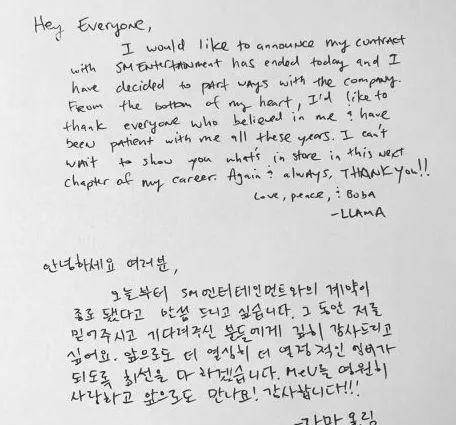 Hey Everyone,
I would like to announce my contract
with SM Entertainment has ended today and I
have decided to part ways with the company.
From the bottom of my heart, I'd like to
thank everyone who believed in me & have
been patient with me all these years. I can't
wait to show you what's in store in this next
chapter of my career. Again & always, THANK YOU!!
Love, peace, & Boba
-LLAMA
안녕하세요 여러분,
오늘부터 SM엔터테인먼트와의 계약이
종료 됐다고 말씀 드리고 싶습니다. 그 동안 저를
믿어주시고 기다려주신 분들에게 깊히 감사드리고
싶어요. 앞으로도 더 열심히 더 열정적인 엠버가
되도록 최선을 다 하겠습니다. MeU들 영원히
사랑하고 앞으로도 만나요! 감사합니다!!!
-라마 올림